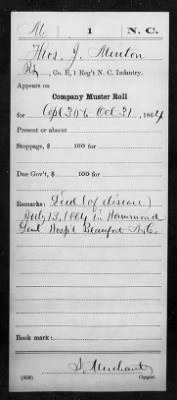 M 1 N.C.
Thos. J. Minton
Pvt, Co. E, 1 Reg't N. C. Infantry.
Appears on
Company Muster Roll
for Sept 30 & Oct. 31, 1864
Present or absent
Stoppage, $ 100 for
Due Gov't, $ 100 for
Remarks: Died (of disease)
July 13, 1864 in Hammond
Genl Hosp'l Beaufort N.C.
Book mark:
S. Merchant
(858) Copyist.